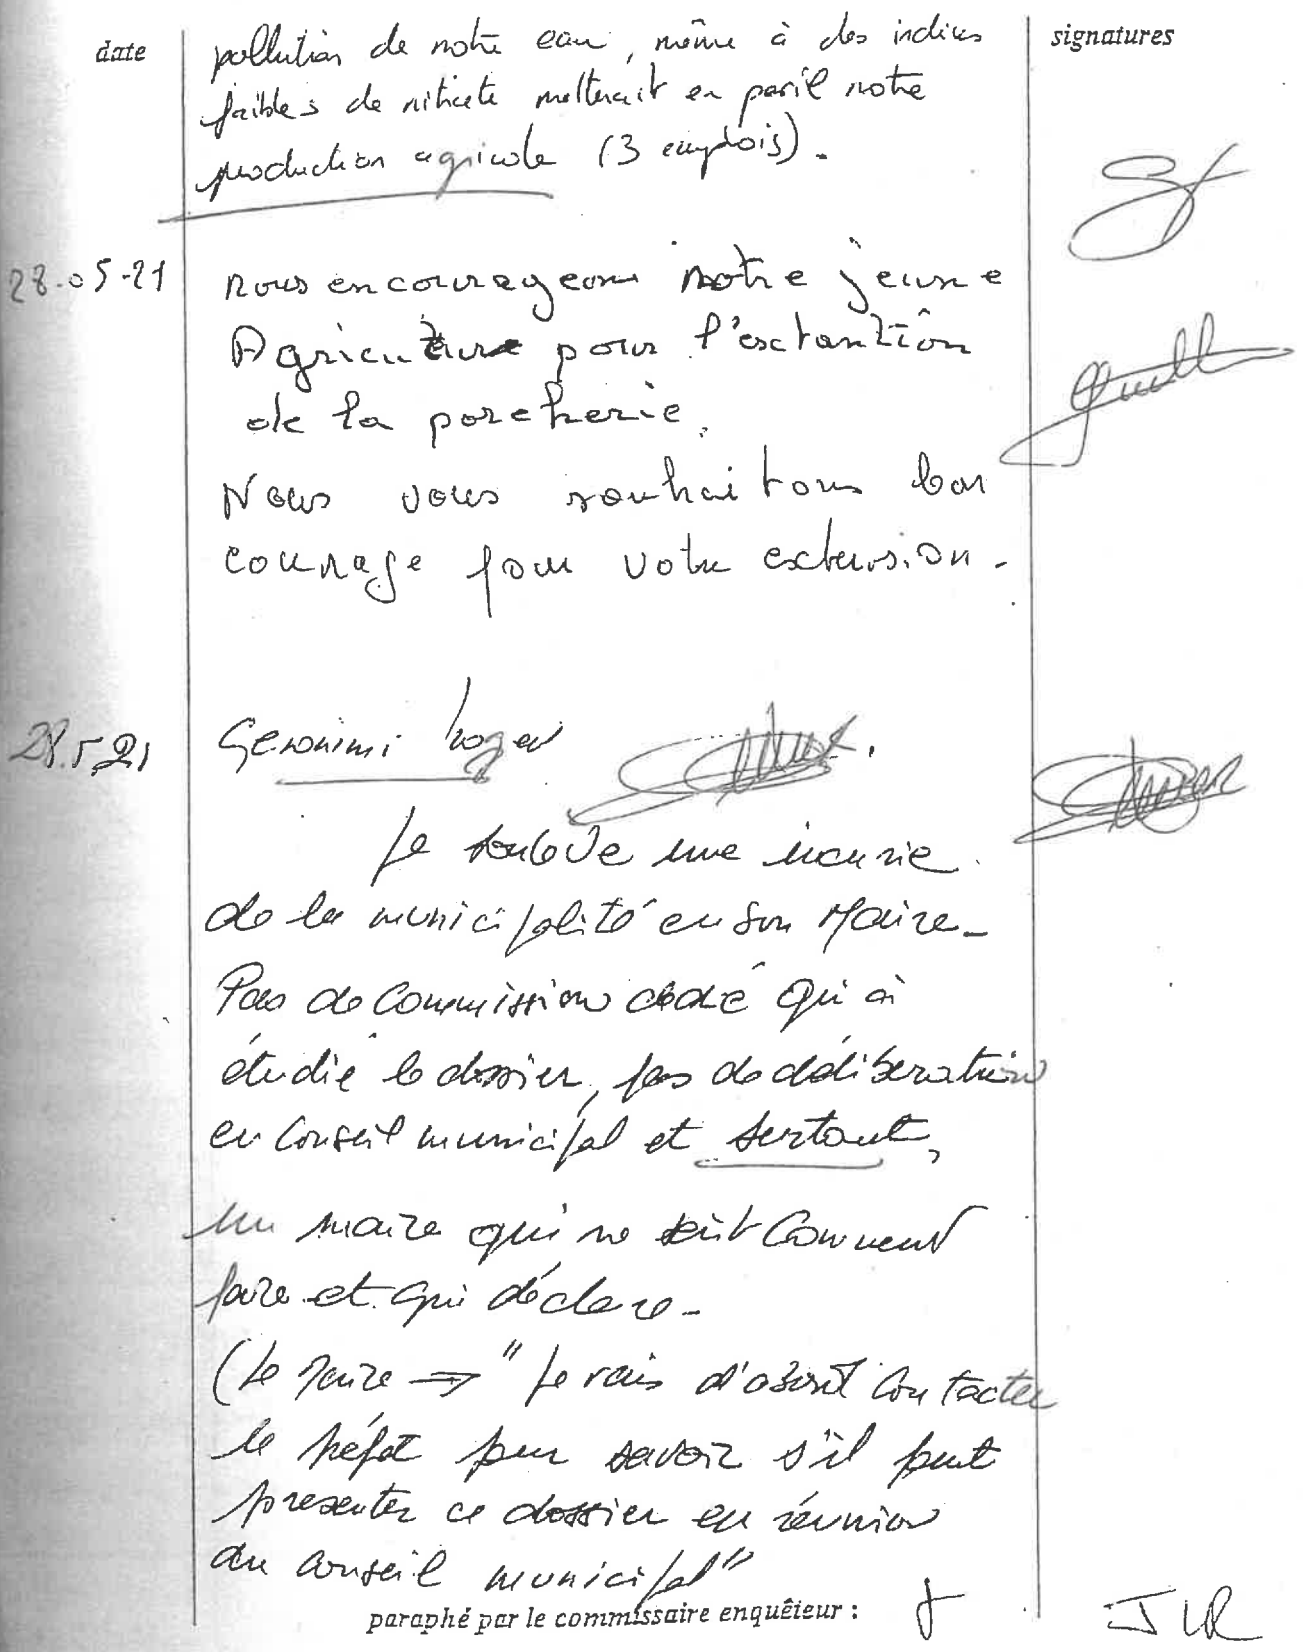 date
signatures
pollution de notre eau, même à des indices
faibles de nitrate mettrait en péril notre
production agricole (3 emplois).
28.05-21
nous encourageons notre jeune
Agriculture pour l'exctantiôn
de la porcherie.
Nous vous souhaitons bon
courage pour votre extension.
28.5.21
Geronimi Roger
Je soulève une incurie
de la municipalité en son Maire_
Pas de Commission dédié qui à
étudié le dossier, pas de délibération
en Conseil municipal et surtout,
un maire qui ne sait Comment
faire et qui déclare_
(Le Maire → "Je vais d'abord Contacter
le préfet pour savoir s'il peut
presenter ce dossier en réunion
du Conseil municipal"
paraphé par le commissaire enquêteur :
JLR